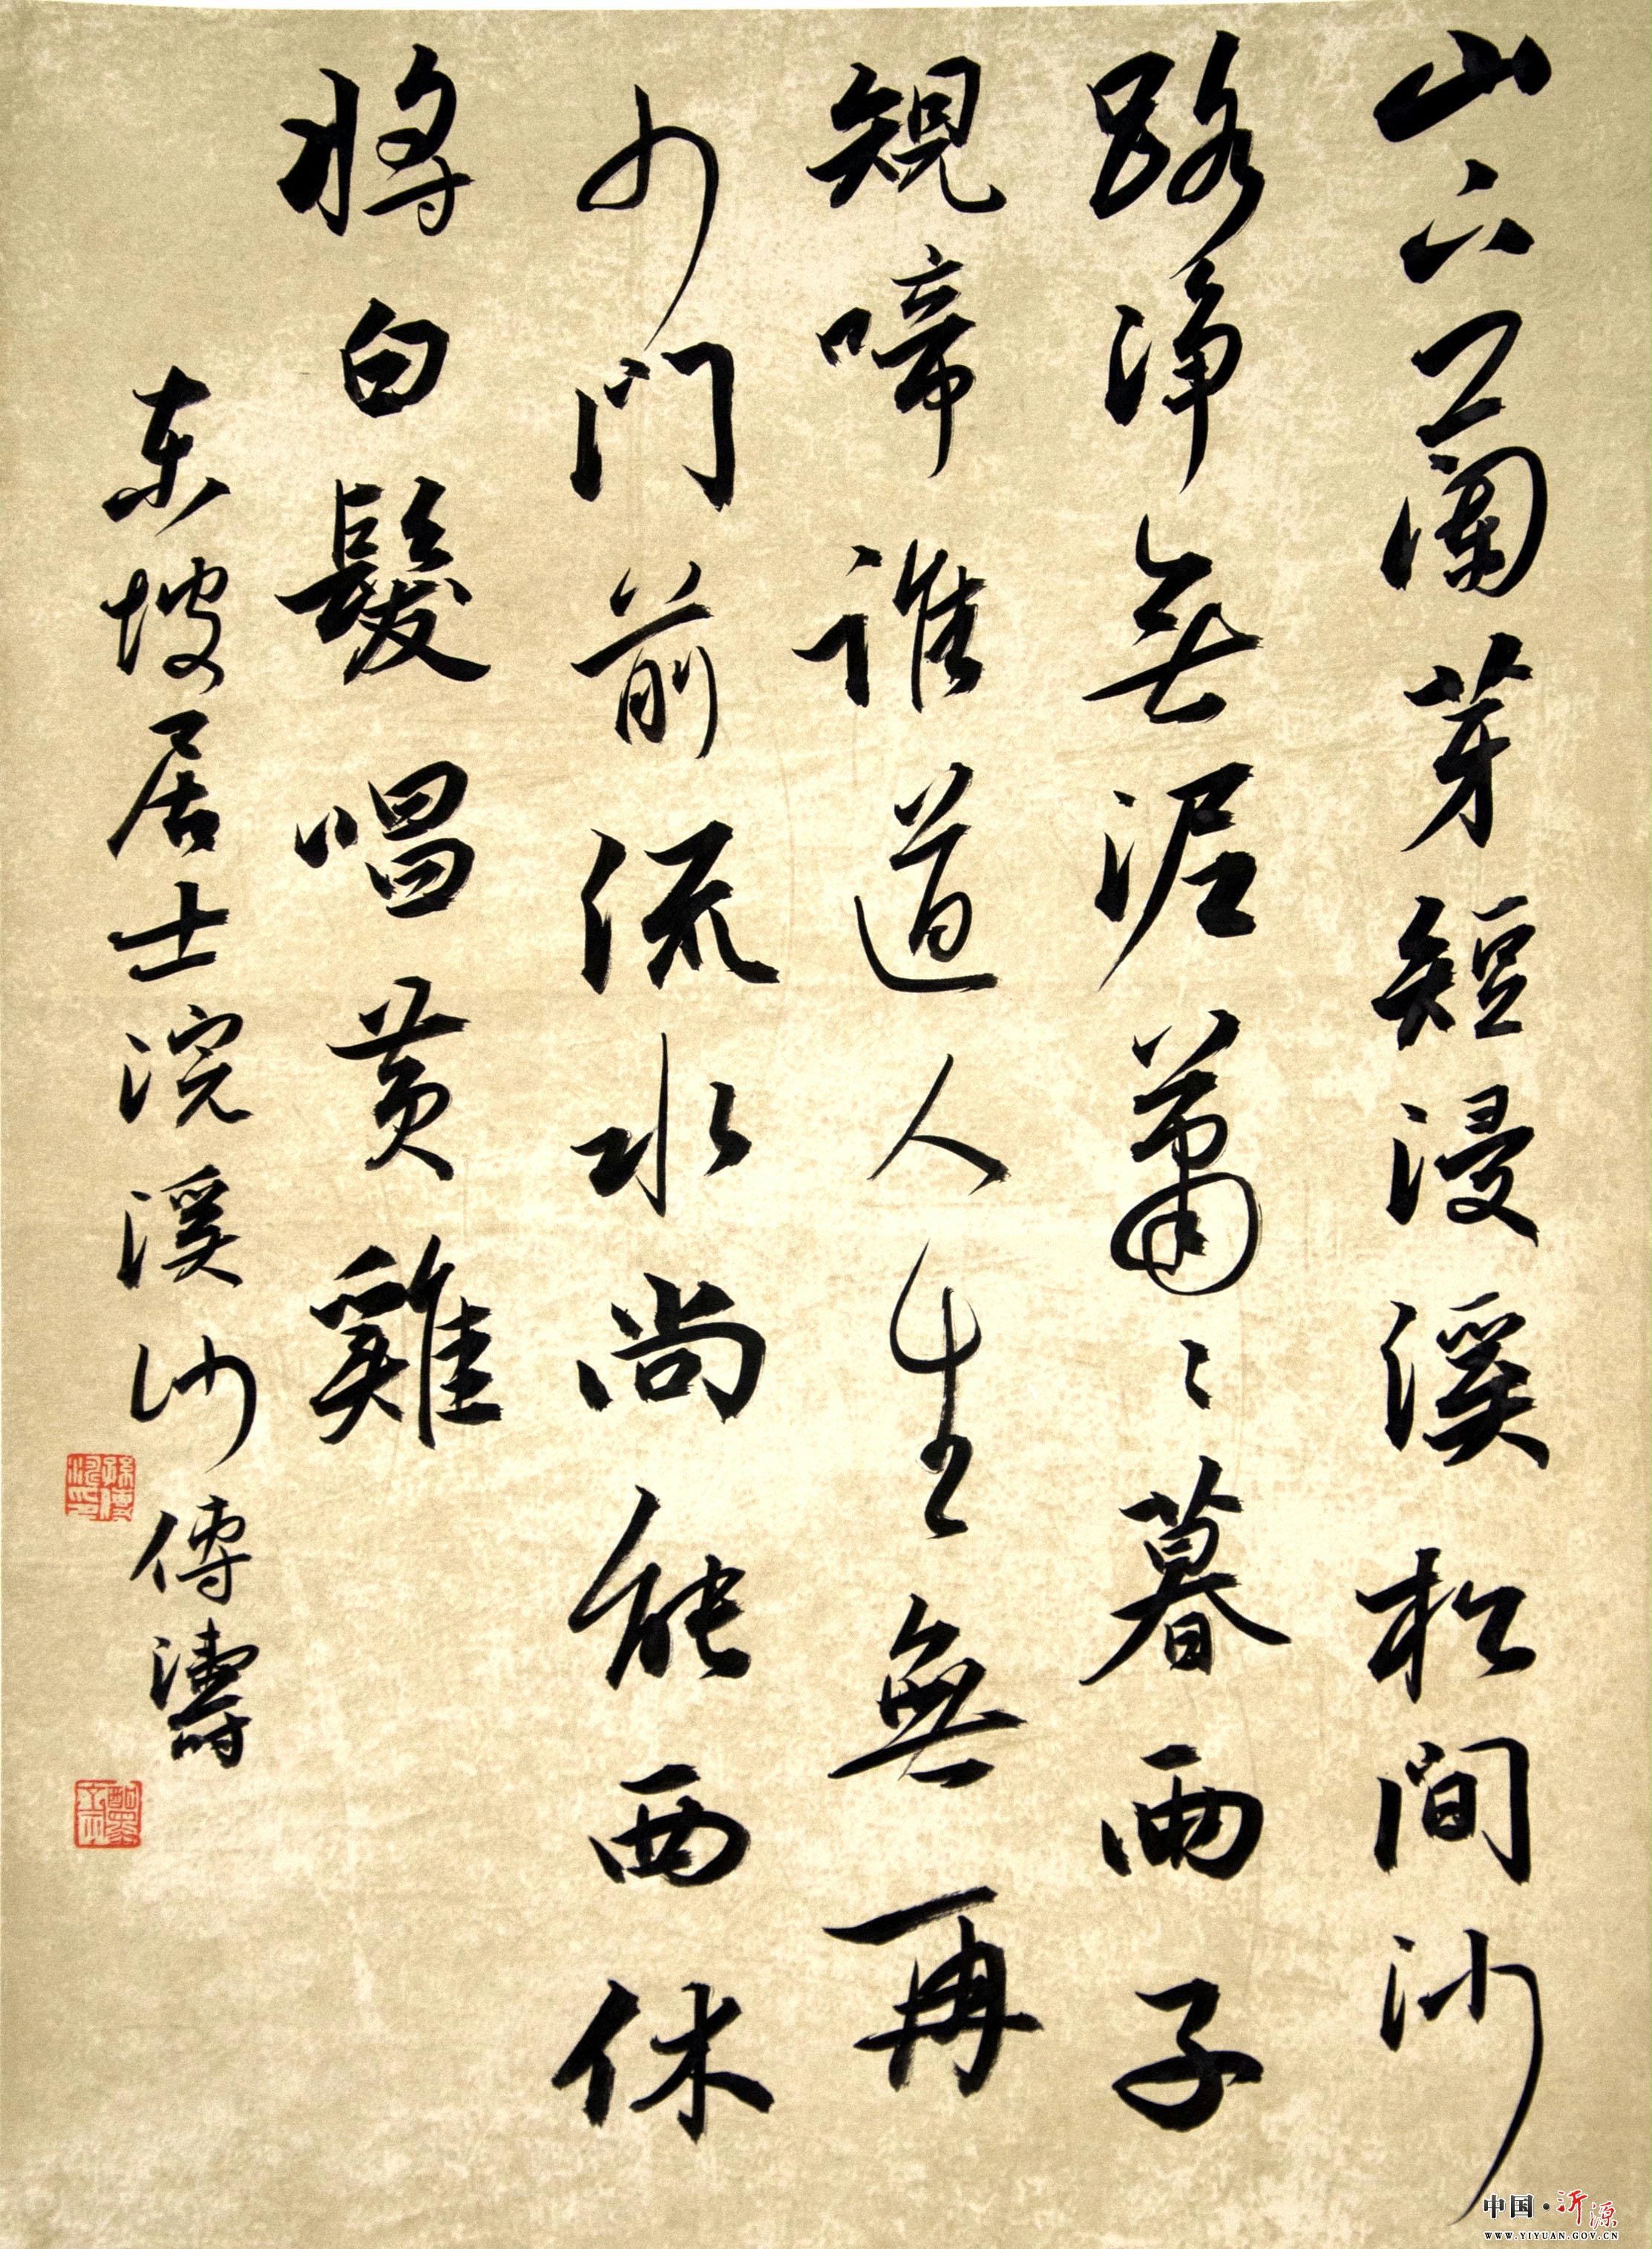 山下蘭芽短浸溪松間沙
路净無泥蕭〻暮雨子
規啼誰道人生無再
少門前流水尚能西休
將白髮唱黄雞
東坡居士浣溪沙 傳濤
孫傳濤印
中国·沂源
WWW.YIYUAN.GOV.CN